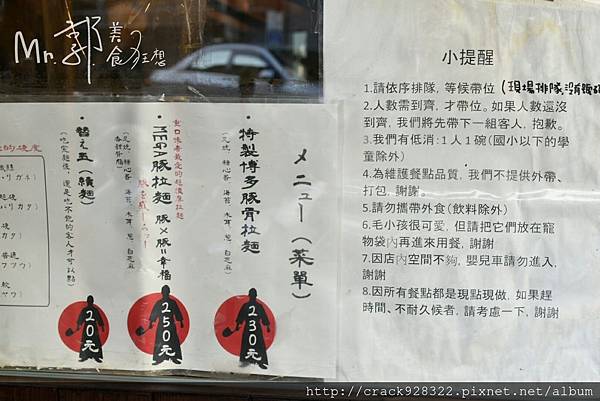 Mr. 郭 美食狂想
小提醒
1.請依序排隊, 等候帶位 (現場排隊,
2.人數需到齊, 才帶位。如果人數還沒
到齊, 我們將先帶下一組客人, 抱歉。
3.我們有低消:1人1碗(國小以下的學
童除外)
4.為維護餐點品質, 我們不提供外帶、
打包, 謝謝。
5.請勿攜帶外食(飲料除外)
6.毛小孩很可愛, 但請把它們放在寵
物袋內再進來用餐, 謝謝
7.因店內空間不夠, 嬰兒車請勿進入,
謝謝
8.因所有餐點都是現點現做, 如果趕
時間、不耐久候者, 請考慮一下, 謝謝
メニュー(菜單)
・特製博多豚骨拉麵
糖心蛋 海苔 木耳 蔥 白芝麻
230元
重口味者最愛的超濃厚拉麵
豚×豚=幸福
糖心蛋 海苔 木耳 蔥 白芝麻
250元
・替え玉(續麵)
(吃完麵後, 還是吃不飽的客人才可以點)
20元
的硬度
http://crack928322.pixnet.net/album